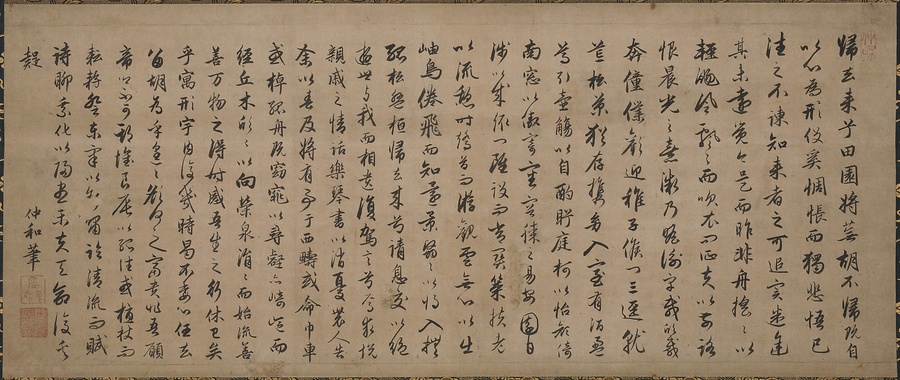 歸去來兮田園將蕪胡不歸既自
以心為形役奚惆悵而獨悲悟已
往之不諫知來者之可追實迷途
其未遠覺今是而昨非舟搖〻以
輕颺風飄〻而吹衣問征夫以前路
恨晨光之熹微乃瞻衡宇載欣載
奔僮僕歡迎稚子候門三逕就
荒松菊猶存攜幼入室有酒盈
尊引壺觴以自酌眄庭柯以怡顏倚
南窓以傲寄審容膝之易安園日
涉以成趣門雖設而常關策扶老
以流憩時矯首而遊觀雲無心以出
岫鳥倦飛而知還景翳〻以將入撫
孤松而盤桓歸去來兮請息交以絕
遊世與我而相遺復駕言兮焉求悅
親戚之情話樂琴書以消憂農人告
余以春及將有事于西疇或命巾車
或棹孤舟既窈窕以尋壑亦崎嶇而
經丘木欣〻以向榮泉涓〻而始流善
善万物之得時感吾生之行休已矣
乎寓形宇內復幾時曷不委心任去
留胡為乎遑〻欲何之富貴非吾願
帝鄉不可期懷良辰以孤往或植杖而
耘耔登東皋以舒嘯臨清流而賦
詩聊乘化以歸盡樂夫天命復奚
疑
仲和筆